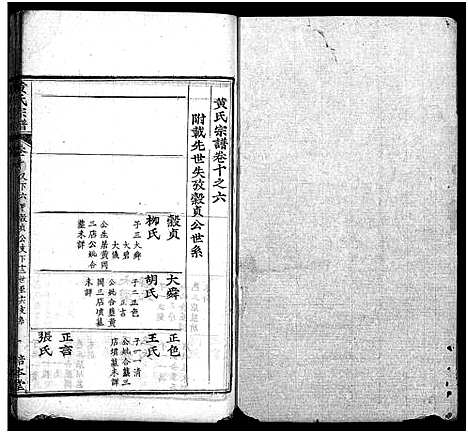 黃氏宗譜卷十之六
附載先世失攷穀貞公世系
穀貞
柳氏
子三大舜
大碧
大儀
公生居黃岡
三店公妣合
墓未詳
大舜
胡氏
子二正色
正言
公妣合塟黃
岡三店墳墓
未詳
正色
王氏
子一一清
公妣合塟三
店墳墓未詳
正言
張氏
黃氏宗譜